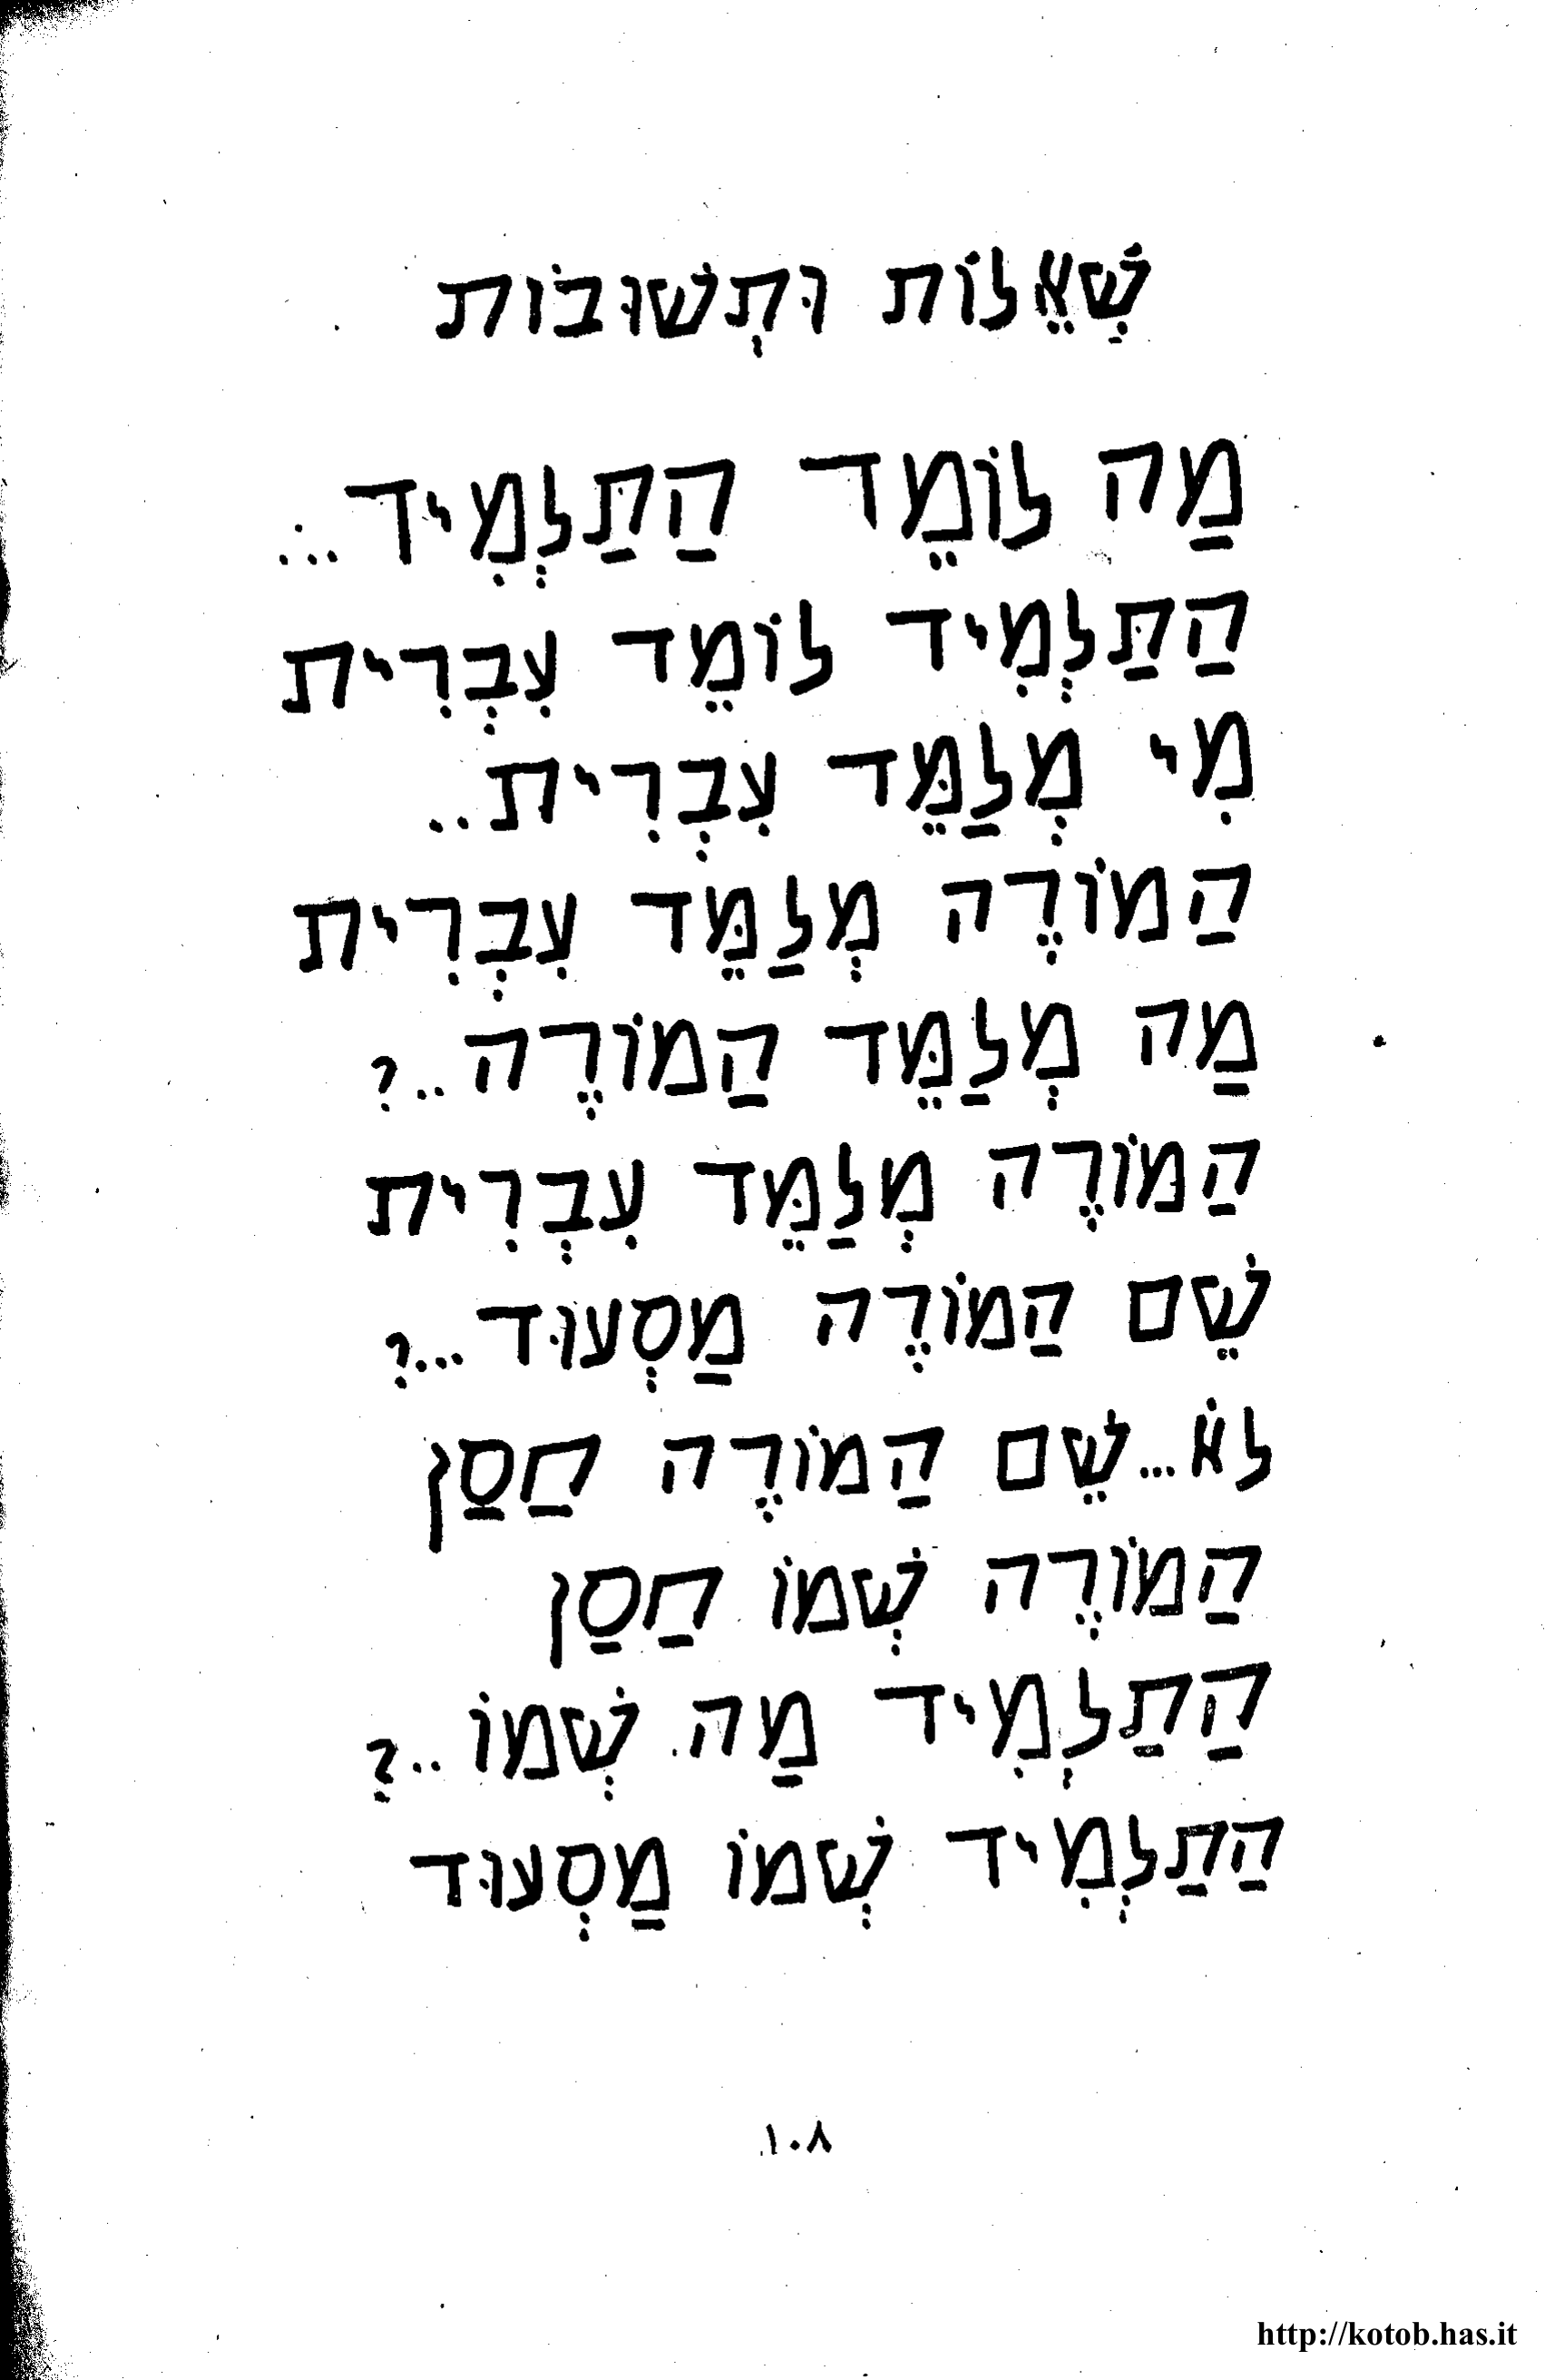 שְׁאֵלוֹת וּתְשׁוּבוֹת
מַה לוֹמֵד הַתַּלְמִיד...
הַתַּלְמִיד לוֹמֵד עִבְרִית
מִי מְלַמֵּד עִבְרִית..
הַמוֹרֶה מְלַמֵּד עִבְרִית
מַה מְלַמֵּד הַמוֹרֶה..?
הַמוֹרֶה מְלַמֵּד עִבְרִית
שֵׁם הַמוֹרֶה מַסְעוּד...?
לֹא...שֵׁם הַמוֹרֶה חַסַן
הַמוֹרֶה שְׁמוֹ חַסַן
הַתַּלְמִיד מַה שְׁמוֹ..?
הַתַּלְמִיד שְׁמוֹ מַסְעוּד
١٠٨
http://kotob.has.it